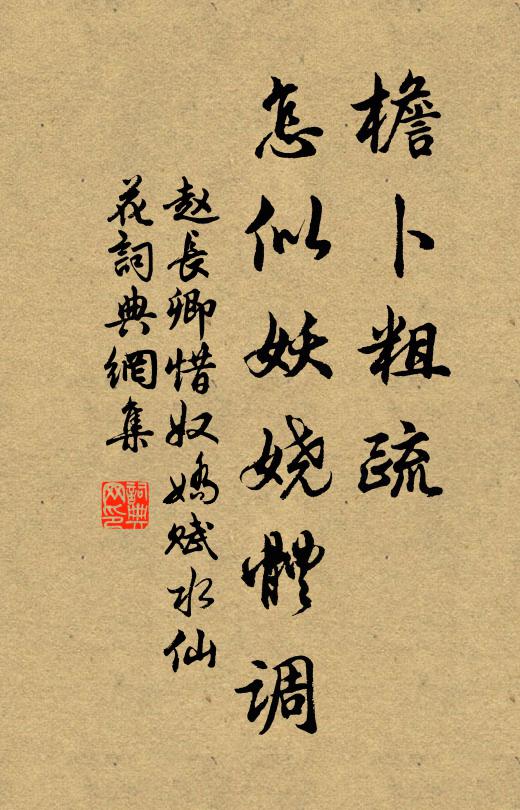 檐卜粗疏
怎似妖娆體调
赵長卿惜奴嬌赋水仙
花詞典網集
詞典网印